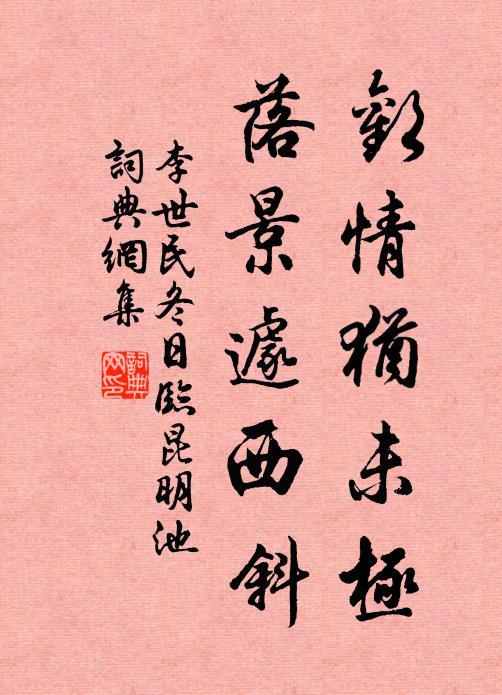 歡情猶未極
落景遽西斜
李世民冬日臨昆明池
詞典網集
詞典網印